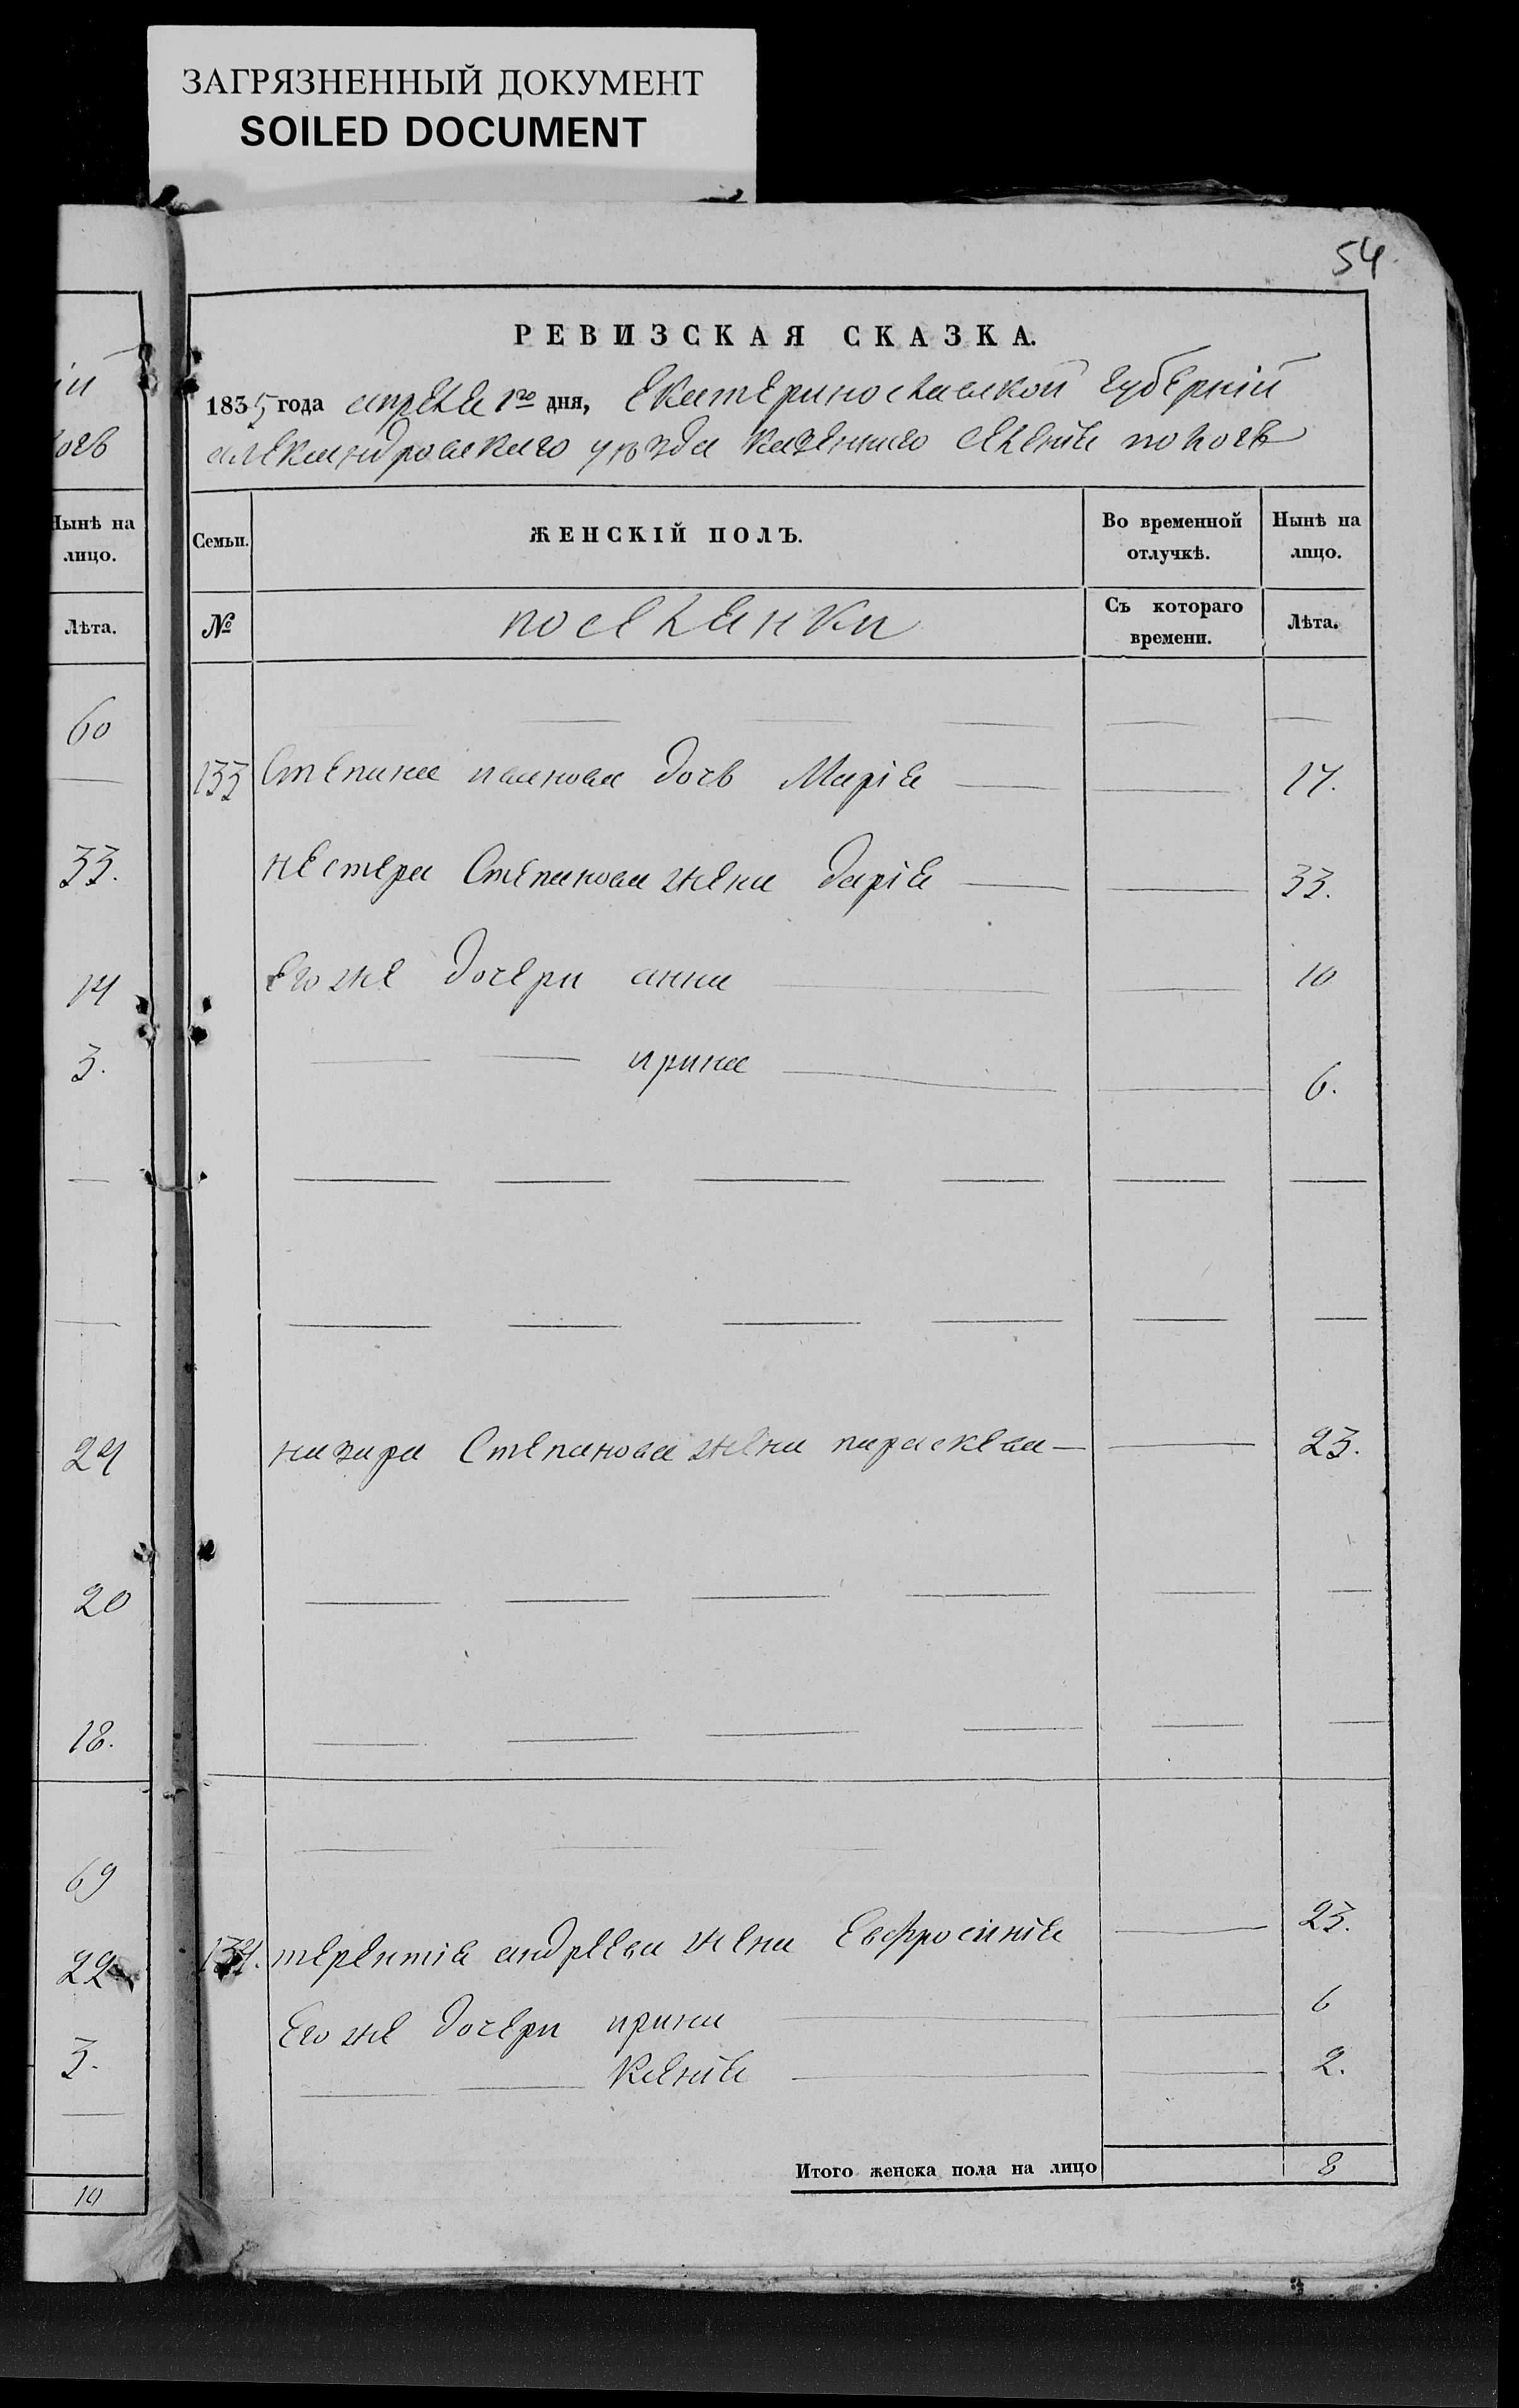 ЗАГРЯЗНЕННЫЙ ДОКУМЕНТ
SOILED DOCUMENT
54
РЕВИЗСКАЯ СКАЗКА.
1835 года апреля 1го дня, Екатеринославской губерніи
александровскаго уѣзда казеннаго селенія пологъ
Семьи.
ЖЕНСКІЙ ПОЛЪ.
Во временной отлучкѣ.
Нынѣ на лицо.
№
поселянки
Съ котораго времени.
Лѣта.
133 Степана иванова дочь Марія 17.
нестера Степанова жена дарія 33.
Его же дочери анна 10
ирина 6.
назара Степанова жена параскева 23.
134. терентія андреева жена Евфросинія 23.
Его же дочери ирина 6
Ксенія 2.
Итого женска пола на лицо 8
Нынѣ на
лицо.
Лѣта.
60
33.
14
3.
24
20
18.
69
22
3.
10